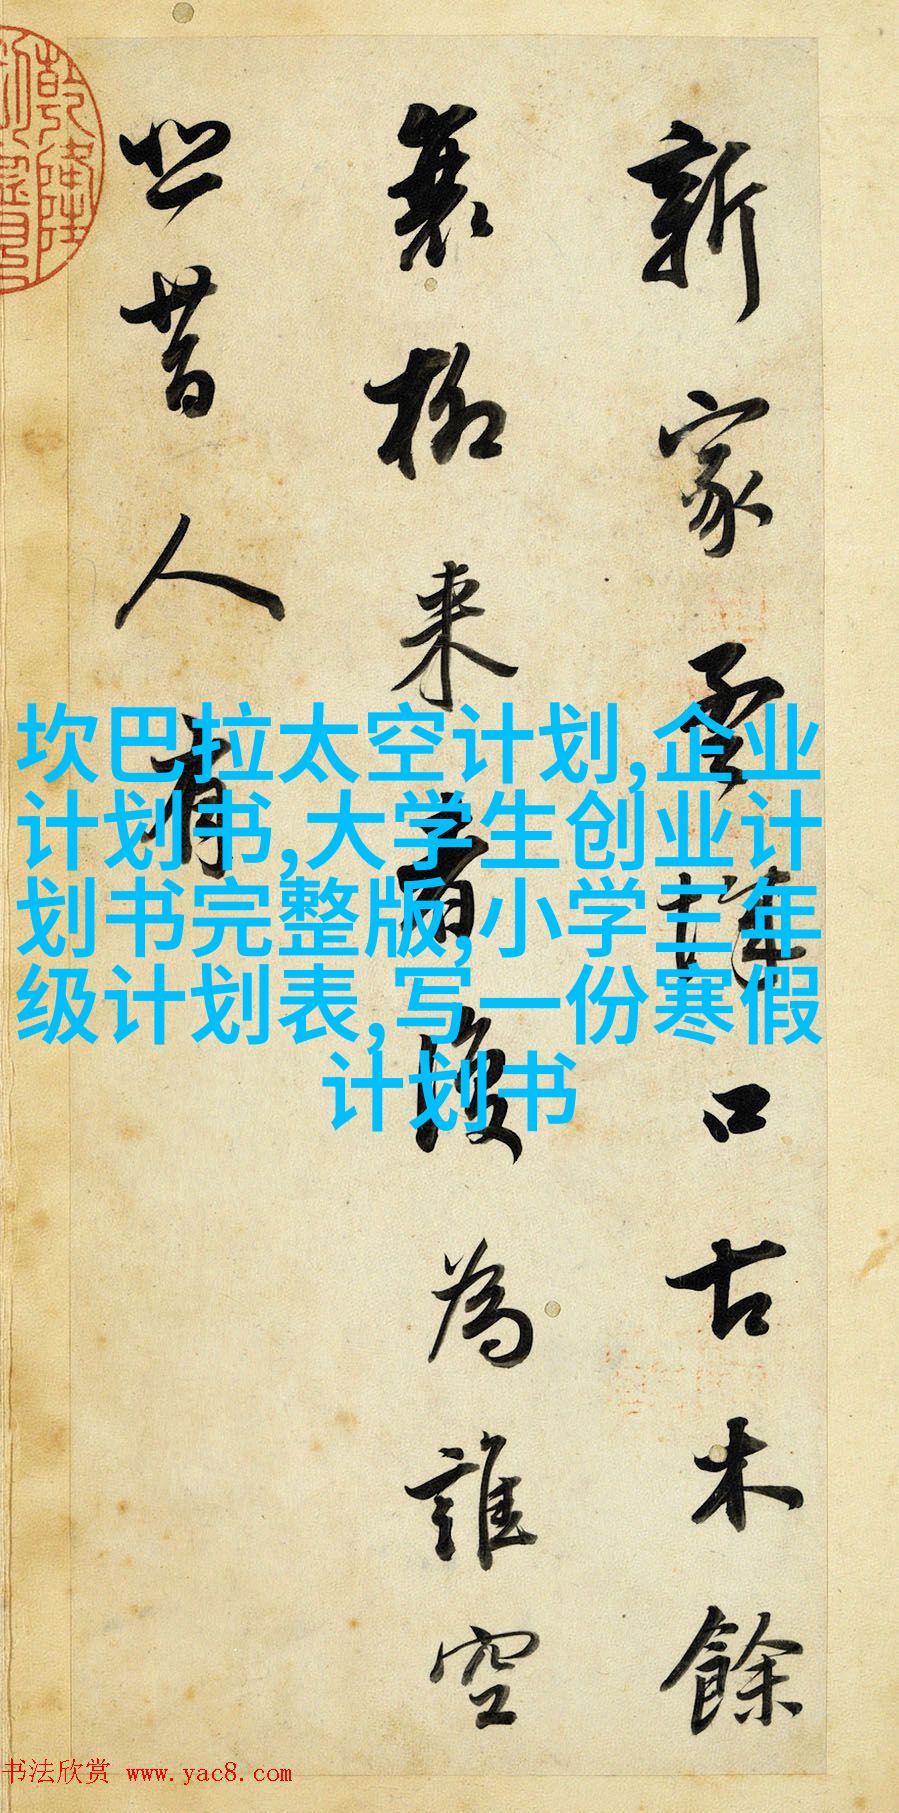 新家孟城口古木餘
衰柳来者復為誰空
悲昔人有
坎巴拉太空计划,企业
计划书,大学生创业计
划书完整版,小学三年
级计划表,写一份寒假
计划书
乾隆
书法欣赏 www.yac8.com